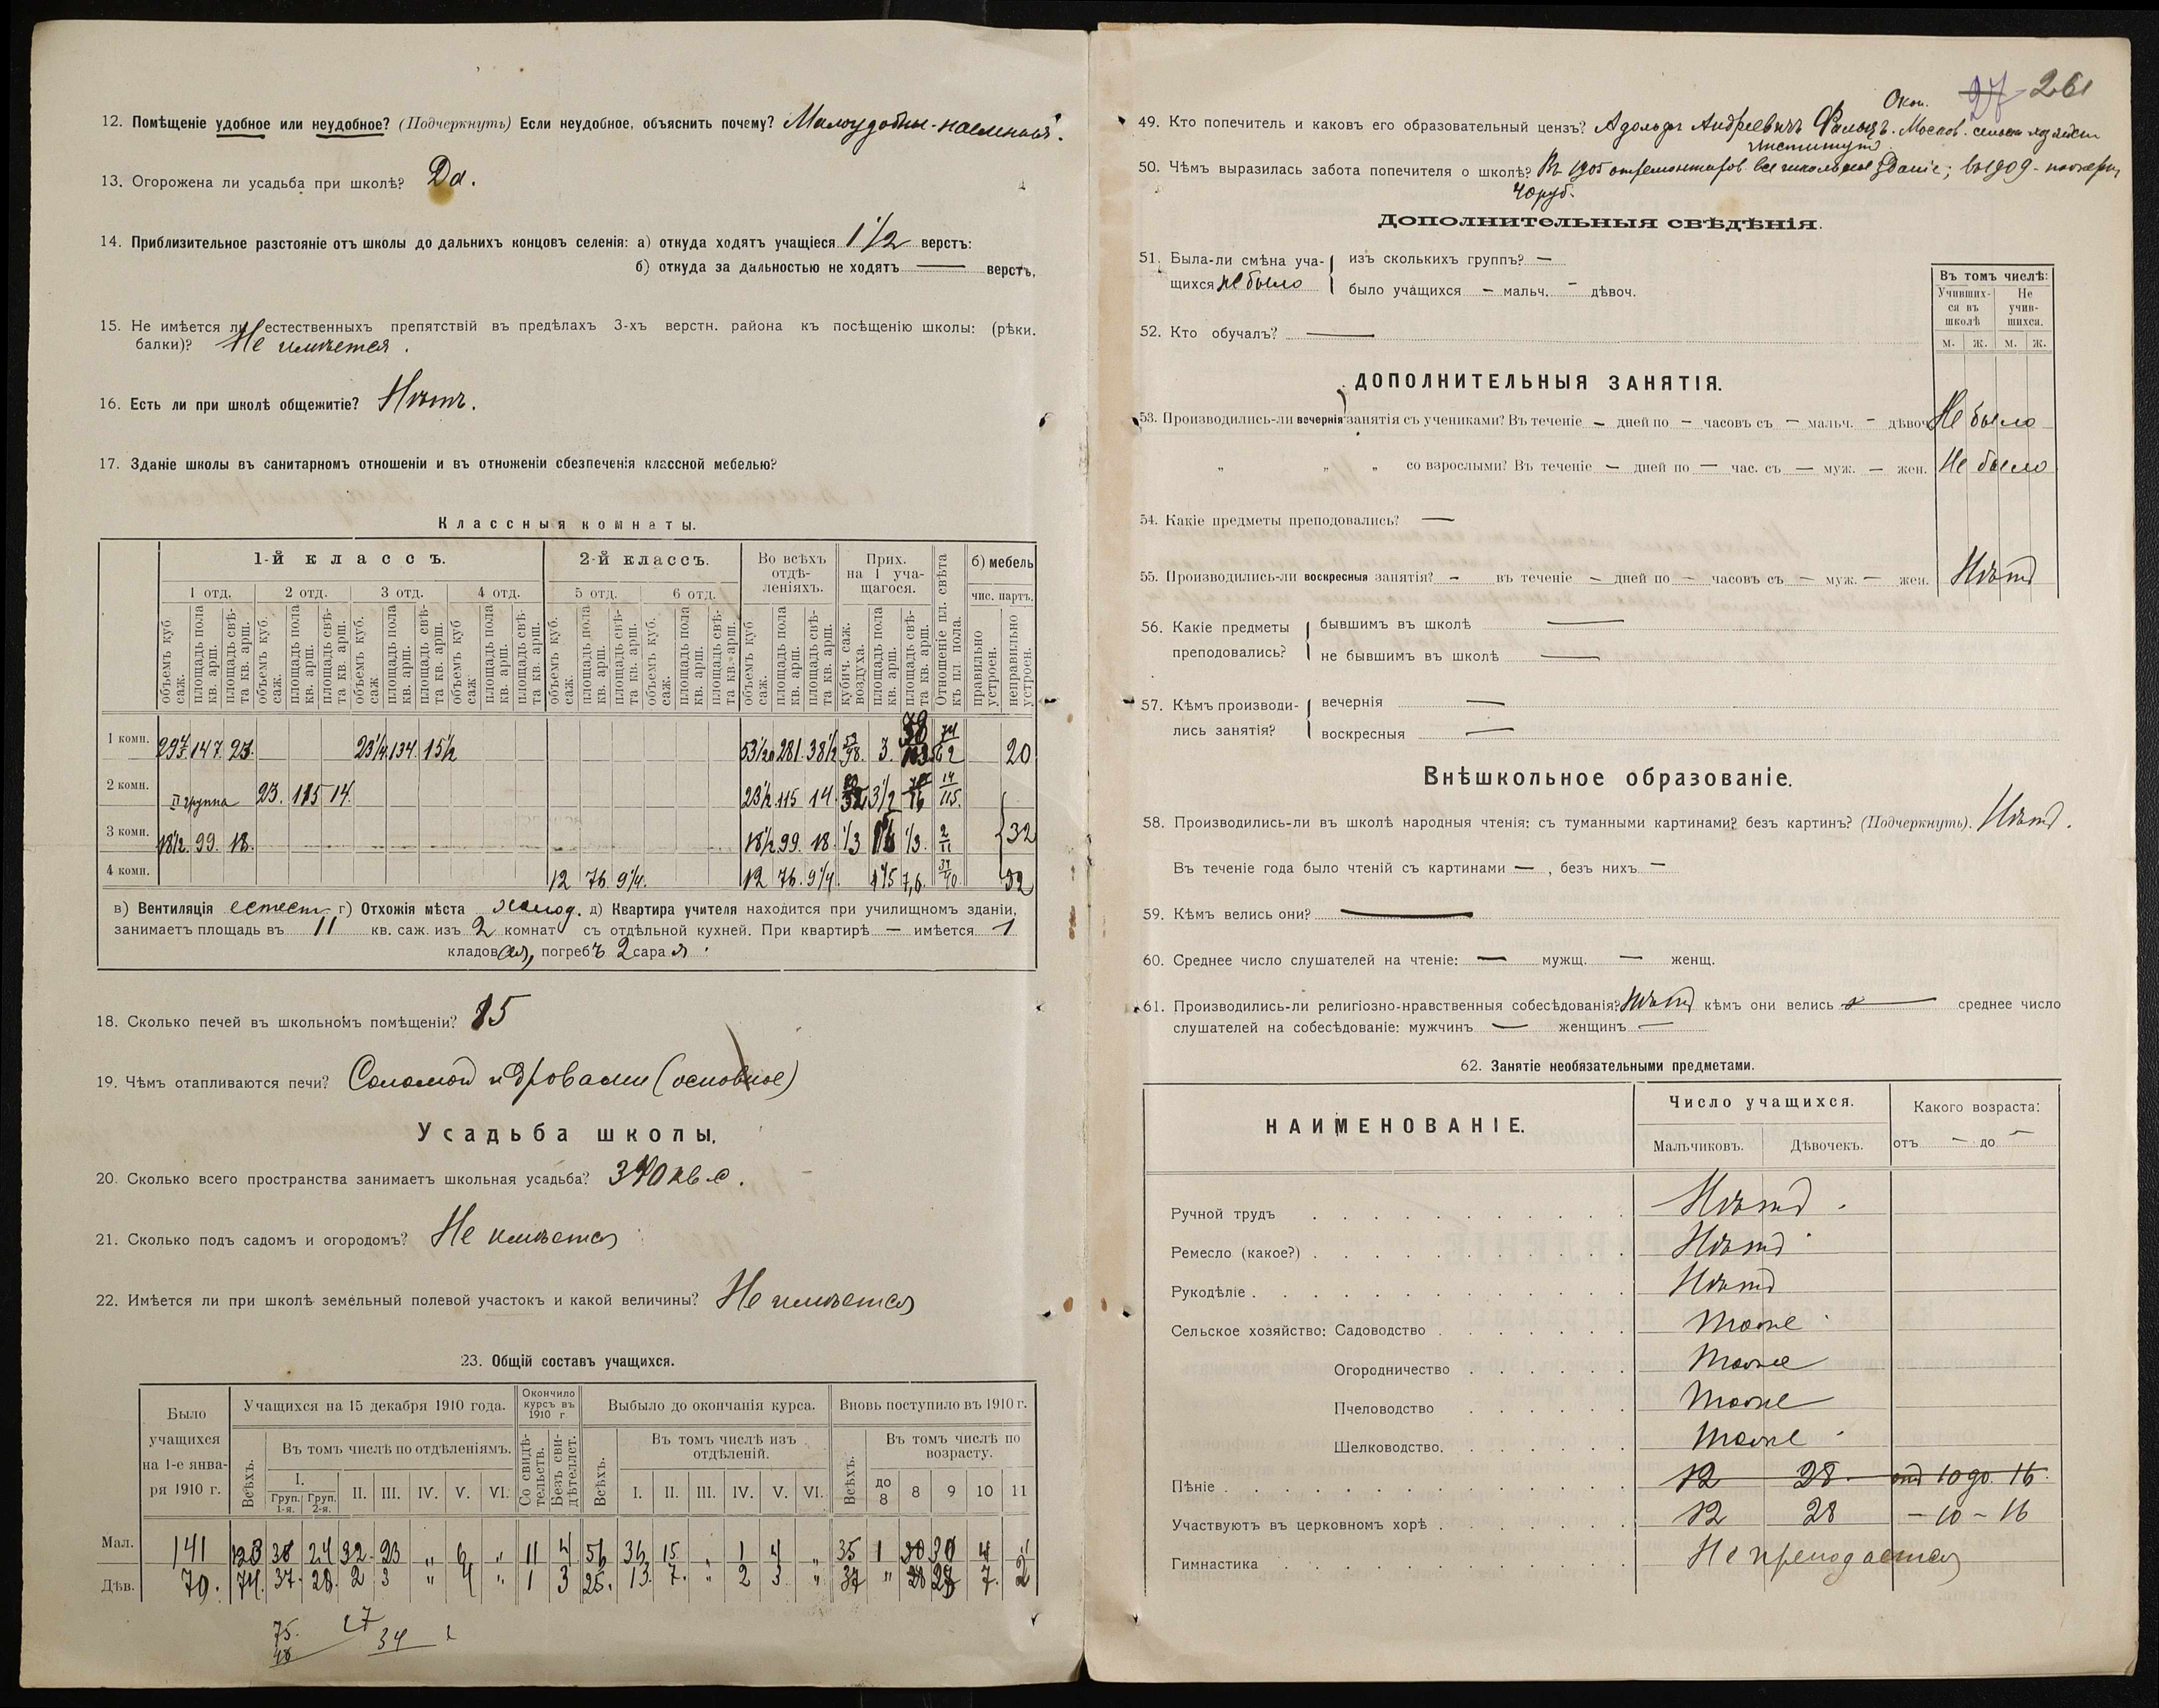 12. Помѣщеніе удобное или неудобное? (Подчеркнуть) Если неудобное, объяснить почему?
13. Огорожена ли усадьба при школѣ? Да.
14. Приблизительное разстояніе отъ школы до дальнихъ концовъ селенія: а) откуда ходятъ учащіеся 1 1/2 верстъ:
б) откуда за дальностью не ходятъ — верстъ,
15. Не имѣется ли естественныхъ препятствій въ предѣлахъ 3-хъ верстн. района къ посѣщенію школы: (рѣки.
балки)? Не имѣется.
16. Есть ли при школѣ общежитіе? Нѣтъ.
17. Зданіе школы въ санитарномъ отношеніи и въ отношеніи обезпеченія классной мебелью?
Классныя комнаты.
1-й классъ. 2-й классъ. Во всѣхъ отдѣленіяхъ. Прих. на 1 учащагося. Отношеніе пл. свѣта къ пл. пола. б) мебель
1 отд. 2 отд. 3 отд. 4 отд. 5 отд. 6 отд. чис. партъ.
объемъ куб саж. площадь пола кв. арш. площадь свѣта кв. арш. кубич. саж. воздуха. правильно устроен. неправильно устроен.
1 комн. 147 134 15 1/2 281 38 1/2 3 20
2 комн. II группа 23. 115 14. 23 1/2 115 14
3 комн. 18 1/2 99 18 18 1/2 99 18 1/3 1/3 2/11 32
4 комн. 12 76 9 1/4 12 76 9 1/4
в) Вентиляція естест. г) Отхожія мѣста холод. д) Квартира учителя находится при училищномъ зданіи,
занимаетъ площадь въ 11 кв. саж. изъ 2 комнат съ отдѣльной кухней. При квартирѣ — имѣется 1
кладовая, погребъ 2 сарая.
18. Сколько печей въ школьномъ помѣщеніи? 15
19. Чѣмъ отапливаются печи? Соломой и дровами (основное)
Усадьба школы.
20. Сколько всего пространства занимаетъ школьная усадьба? 340 кв. с.
21. Сколько подъ садомъ и огородомъ? Не имѣется
22. Имѣется ли при школѣ земельный полевой участокъ и какой величины? Не имѣется
23. Общій составъ учащихся.
Было учащихся на 1-е января 1910 г. Учащихся на 15 декабря 1910 года. Окончило курсъ въ 1910 г Выбыло до окончанія курса. Вновь поступило въ 1910 г.
Всѣхъ. Въ томъ числѣ по отдѣленіямъ. Со свидѣтельств. Безъ свидѣтеллст. Всѣхъ. Въ томъ числѣ изъ отдѣленій. Всѣхъ. Въ томъ числѣ по возрасту.
I. Груп. 1-я. Груп. 2-я. II. III. IV. V. VI. I. II. III. IV. V. VI. до 8 8 9 10 11
Мал. 141 123 38 24 32 23 „ 6 „ 11 4 56 36 15 „ 1 4 „ 35 1
Дѣв. 70. 74. 37. 28. 2 3 „ 4 „ 1 3 25. 13. 7. „ 2 3 „ 37 „ 7. 2
75.
34
27 261
49. Кто попечитель и каковъ его образовательный цензъ? Адольфъ Андреевичъ Фальцъ. Окон. Москов. сельск. хозяйст
институтъ
50. Чѣмъ выразилась забота попечителя о школѣ? Въ 1905 отремонтиров. все школьное зданіе; въ 1909 - пожертв
40 руб.
Дополнительныя свѣдѣнія.
51. Была-ли смѣна учащихся не было изъ сколькихъ группъ? —
было учащихся — мальч. — дѣвоч.
Въ томъ числѣ:
Учившихся въ школѣ Не учившихся.
м. ж. м. ж.
52. Кто обучалъ? —
ДОПОЛНИТЕЛЬНЫЯ ЗАНЯТІЯ.
53. Производились-ли вечернія занятія съ учениками? Въ теченіе — дней по — часовъ съ — мальч. — дѣвоч. Не было
„ „ „ со взрослыми? Въ теченіе — дней по — час. съ — муж. — жен. Не было
54. Какіе предметы преподовались? —
55. Производились-ли воскресныя занятія? — въ теченіе — дней по — часовъ съ — муж. — жен. Нѣтъ
56. Какіе предметы преподовались? бывшимъ въ школѣ —
не бывшимъ въ школѣ —
57. Кѣмъ производились занятія? вечернія —
воскресныя —
Внѣшкольное образованіе.
58. Производились-ли въ школѣ народныя чтенія: съ туманными картинами? безъ картинъ? (Подчеркнуть). Нѣтъ.
Въ теченіе года было чтеній съ картинами —, безъ нихъ —
59. Кѣмъ велись они? —
60. Среднее число слушателей на чтеніе: — мужщ. — женщ.
61. Производились-ли религіозно-нравственныя собесѣдованія? Нѣтъ кѣмъ они велись — среднее число
слушателей на собесѣдованіе: мужчинъ — женщинъ —
62. Занятіе необязательными предметами.
НАИМЕНОВАНІЕ. Число учащихся. Какого возраста:
Мальчиковъ. Дѣвочекъ. отъ — до —
Ручной трудъ Нѣтъ.
Ремесло (какое?) Нѣтъ
Рукодѣліе Нѣтъ
Сельское хозяйство: Садоводство Тоже
Огородничество Тоже
Пчеловодство Тоже
Шелководство Тоже
Пѣніе 12 28 отъ 10 до 16
Участвуютъ въ церковномъ хорѣ 12 28 - 10 - 16
Гимнастика Не преподается